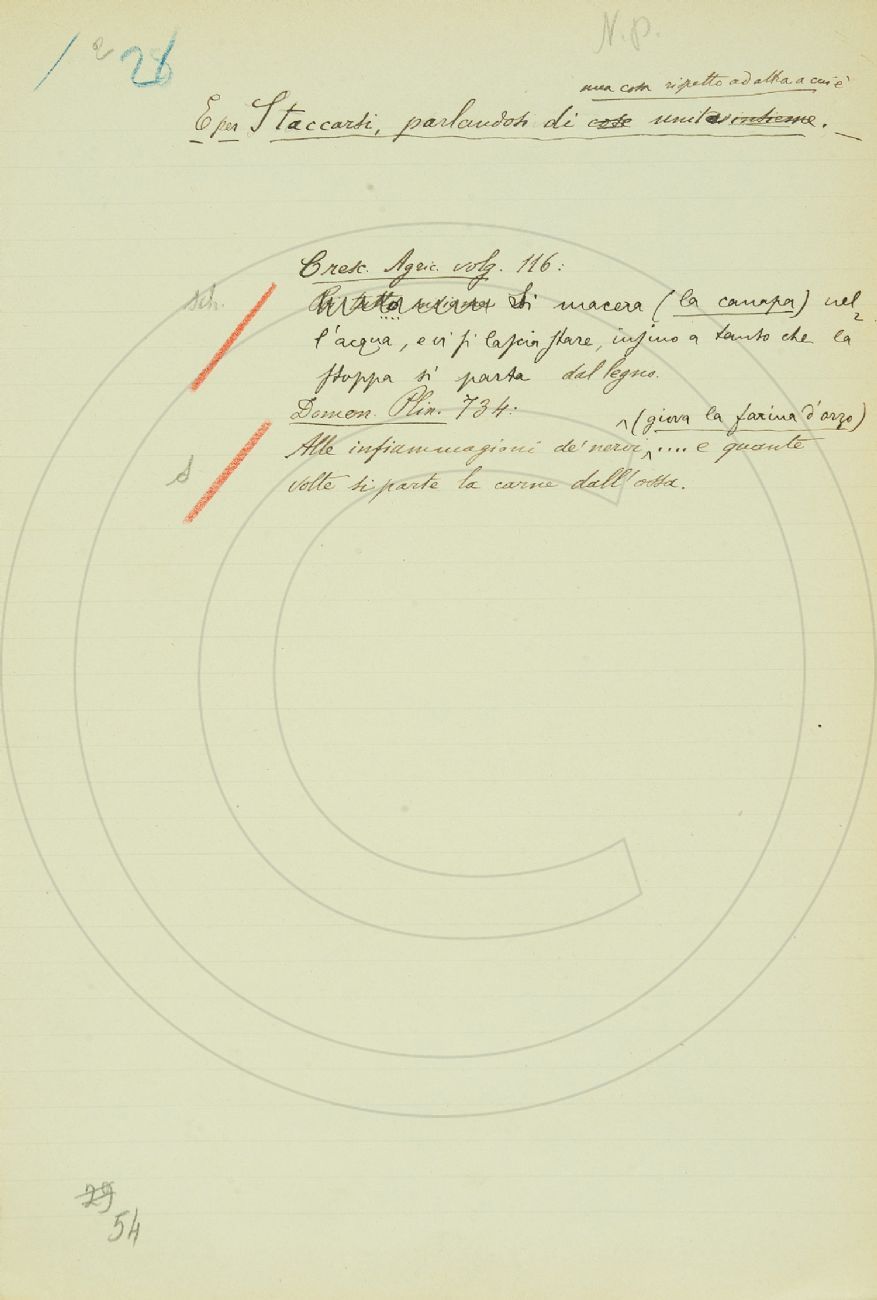 N.p.
2 26
una cosa rispetto ad altra a cui è
E per Staccarsi, parlandosi di cose unita insieme.
Cresc. Agric. volg. 116:
Sch. Si macera (la canapa) nel-
l'acqua, e vi si lascia stare, insino a tanto che la
stoppa si parta dal legno.
Domen. Plin. 734:
(giova la farina d'orzo)
S Alle infiammagioni de' nervi, .... e quante
volte si parte la carne dall'ossa.
29
54